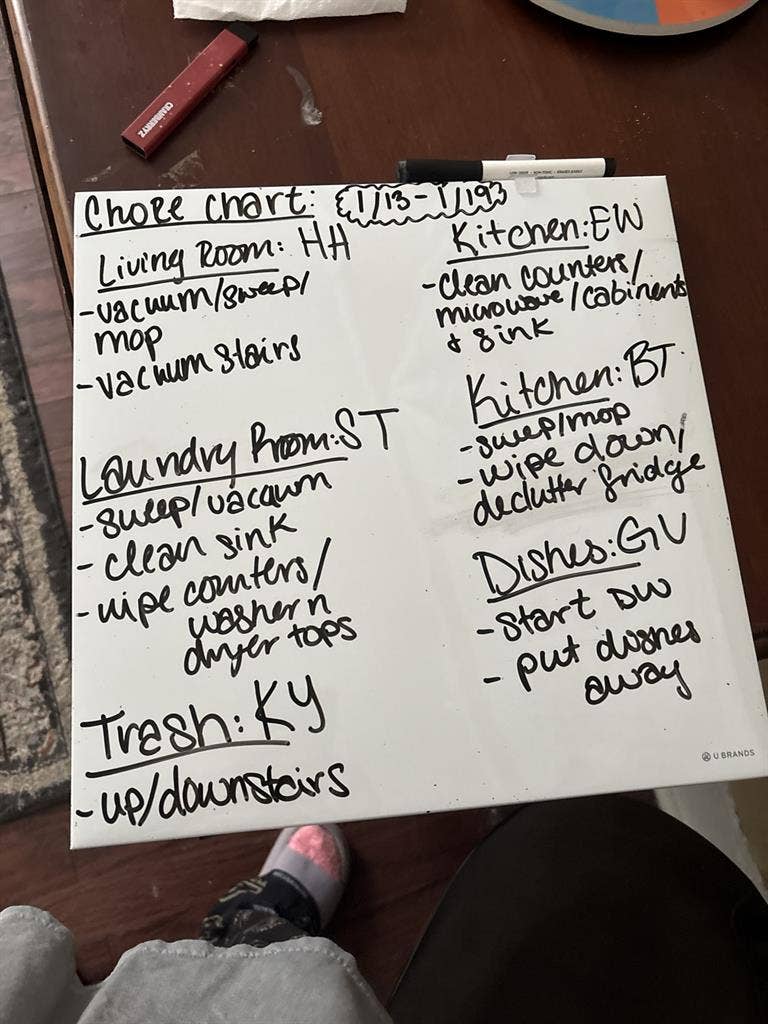 Chore Chart: 1/13 - 1/19
Living Room: HH
- vacuum/sweep/
mop
- vacuum stairs
Laundry Room: ST
- sweep/vacuum
- clean sink
- wipe counters/
washer n
dryer tops
Trash: KY
- up/downstairs
Kitchen: EW
- clean counters/
microwave/cabinents
& sink
Kitchen: BT
- sweep/mop
- wipe down/
declutter fridge
Dishes: GV
- start DW
- put dishes
away
U BRANDS